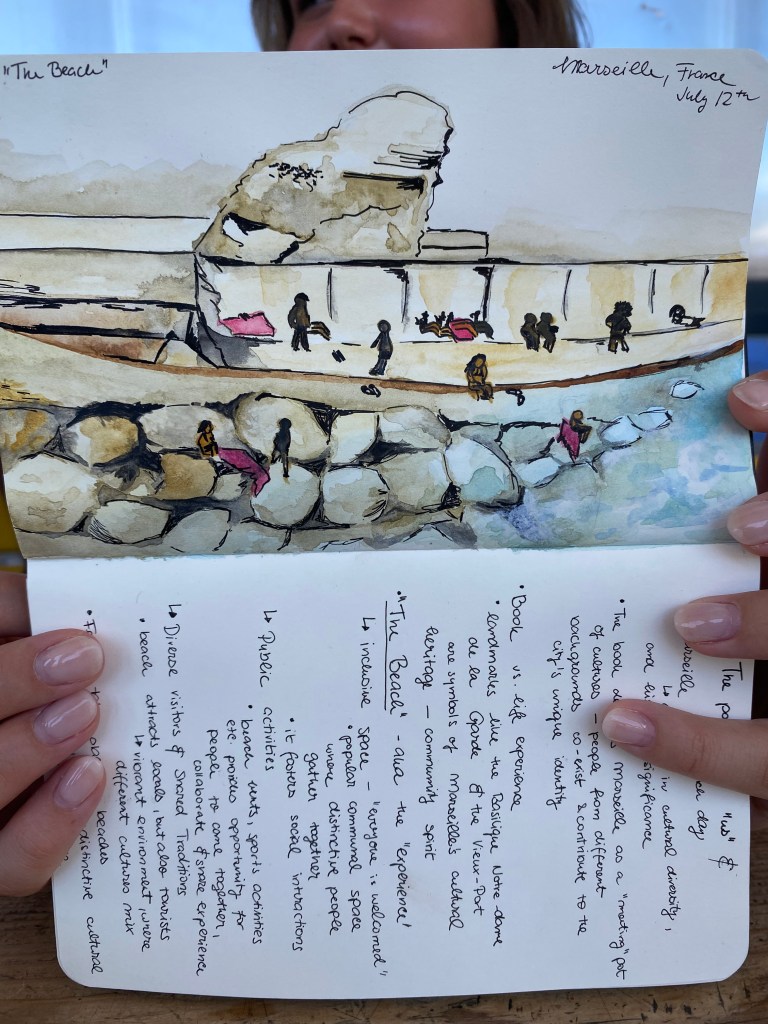 "The Beach"
Marseille, France
July 12th
The "us" &
day,
↳ in cultural diversity,
and significance
• The book Marseille as a "meeting" pot
of cultures — people from different
backgrounds co-exist & contribute to the
city's unique identity
• Book vs. life experience
• landmarks like the Basilique Notre dame
de la Garde & the Vieux-Port
are symbols of Marseille's cultural
heritage — community spirit
• "The Beach" - aka the "experience!
↳ inclusive space — "everyone is welcomed"
• popular communal space
where distinctive people
gather together
• it fosters social interactions
↳ Public activities
• beach huts, sports activities
etc. provides opportunity for
people to come together,
collaborate & share experience
↳ Diverse visitors & Shared Traditions
• beach attracts locals, but also tourists
↳ vibrant environment where
different cultures mix
• beaches
distinctive cultural